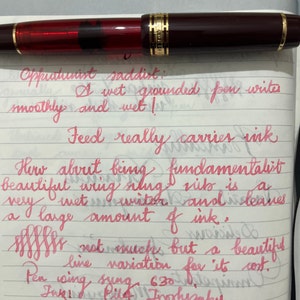 Oppurtunist saddist:
A wet grounded pen writes
smoothly and wet!
Feed really carries ink
How abrit being fundamentalist
beautiful wing sung nibs is a
very wet writer and leaves
a large amount of ink.
not much but a beautiful
line variation for its cost.
Pen wing sung 630
Ink: Pilot